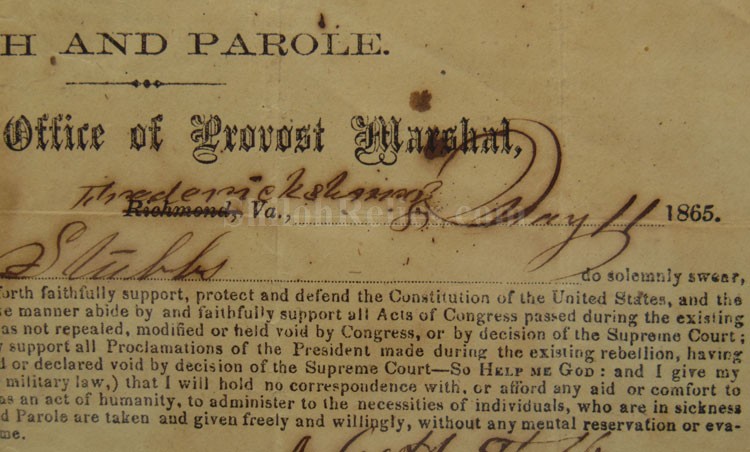 H AND PAROLE.
Office of Provost Marshal,
Richmond, Va., May 11 1865.
Stubbs do solemnly swear,
orth faithfully support, protect and defend the Constitution of the United States, and the
e manner abide by and faithfully support all Acts of Congress passed during the existing
as not repealed, modified or held void by Congress, or by decision of the Supreme Court;
y support all Proclamations of the President made during the existing rebellion, having
d or declared void by decision of the Supreme Court—So HELP ME GOD: and I give my
military law,) that I will hold no correspondence with, or afford any aid or comfort to
as an act of humanity, to administer to the necessities of individuals, who are in sickness
d Parole are taken and given freely and willingly, without any mental reservation or eva-
me.